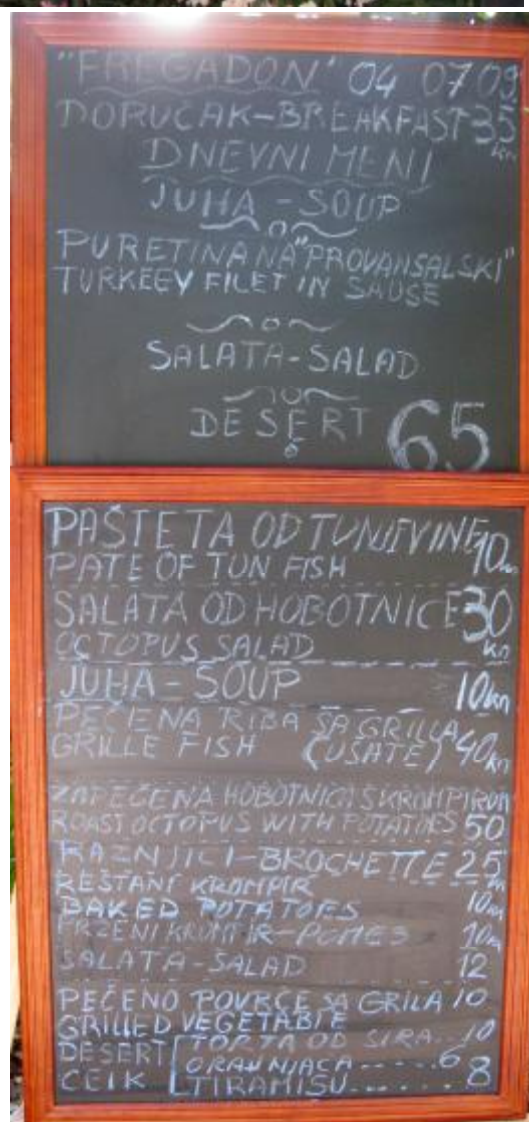 "FREGADON" 04 07 09
DORUČAK-BREAKFAST 35
kn
DNEVNI MENI
JUHA - SOUP
PURETINA NA "PROVANSALSKI"
TURKEEY FILET IN SAUSE
SALATA-SALAD
DESERT 65
PAŠTETA OD TUNJEVINE 10
PATE OF TUN FISH
SALATA OD HOBOTNICE 30
OCTOPUS SALAD kn
JUHA - SOUP 10kn
PEČENA RIBA SA GRILLA
GRILLE FISH (UŠATE) 40kn
ZAPEČENA HOBOTNICA S KROMPIROM
ROAST OCTOPUS WITH POTATOES 50
RAŽNJIĆI-BROCHETTE 25
REŠTANI KROMPIR kn
BAKED POTATOES 10kn
PRŽENI KROMPIR-POMES 10kn
SALATA-SALAD 12
PEČENO POVRĆE SA GRILA 10
GRILLED VEGETABLE
DESERT TORTA OD SIRA.. 10
ORAHNJAČA----- 6
CEIK TIRAMISU...... 8